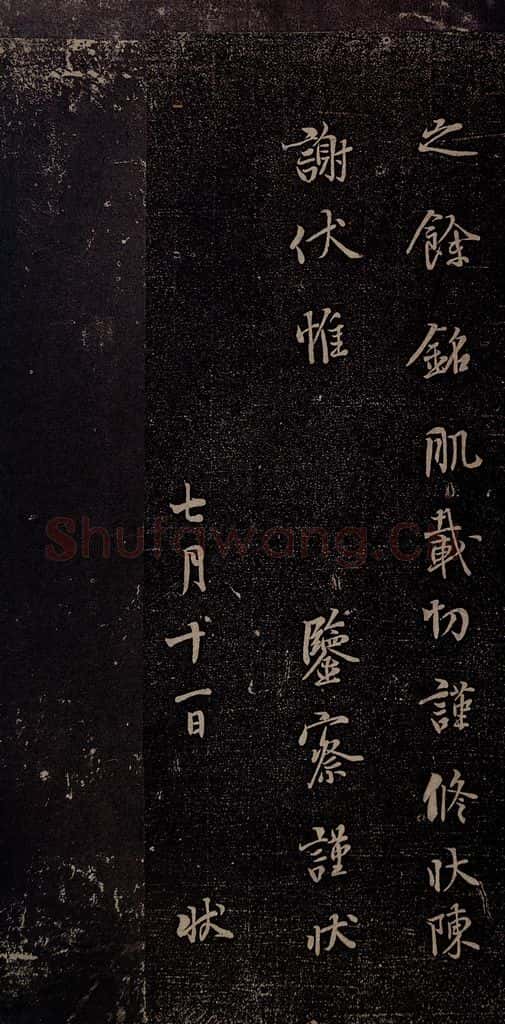 之餘銘肌載切謹修狀陳
謝伏惟 鑒察謹狀
七月十一日 狀
Shufawang.cn